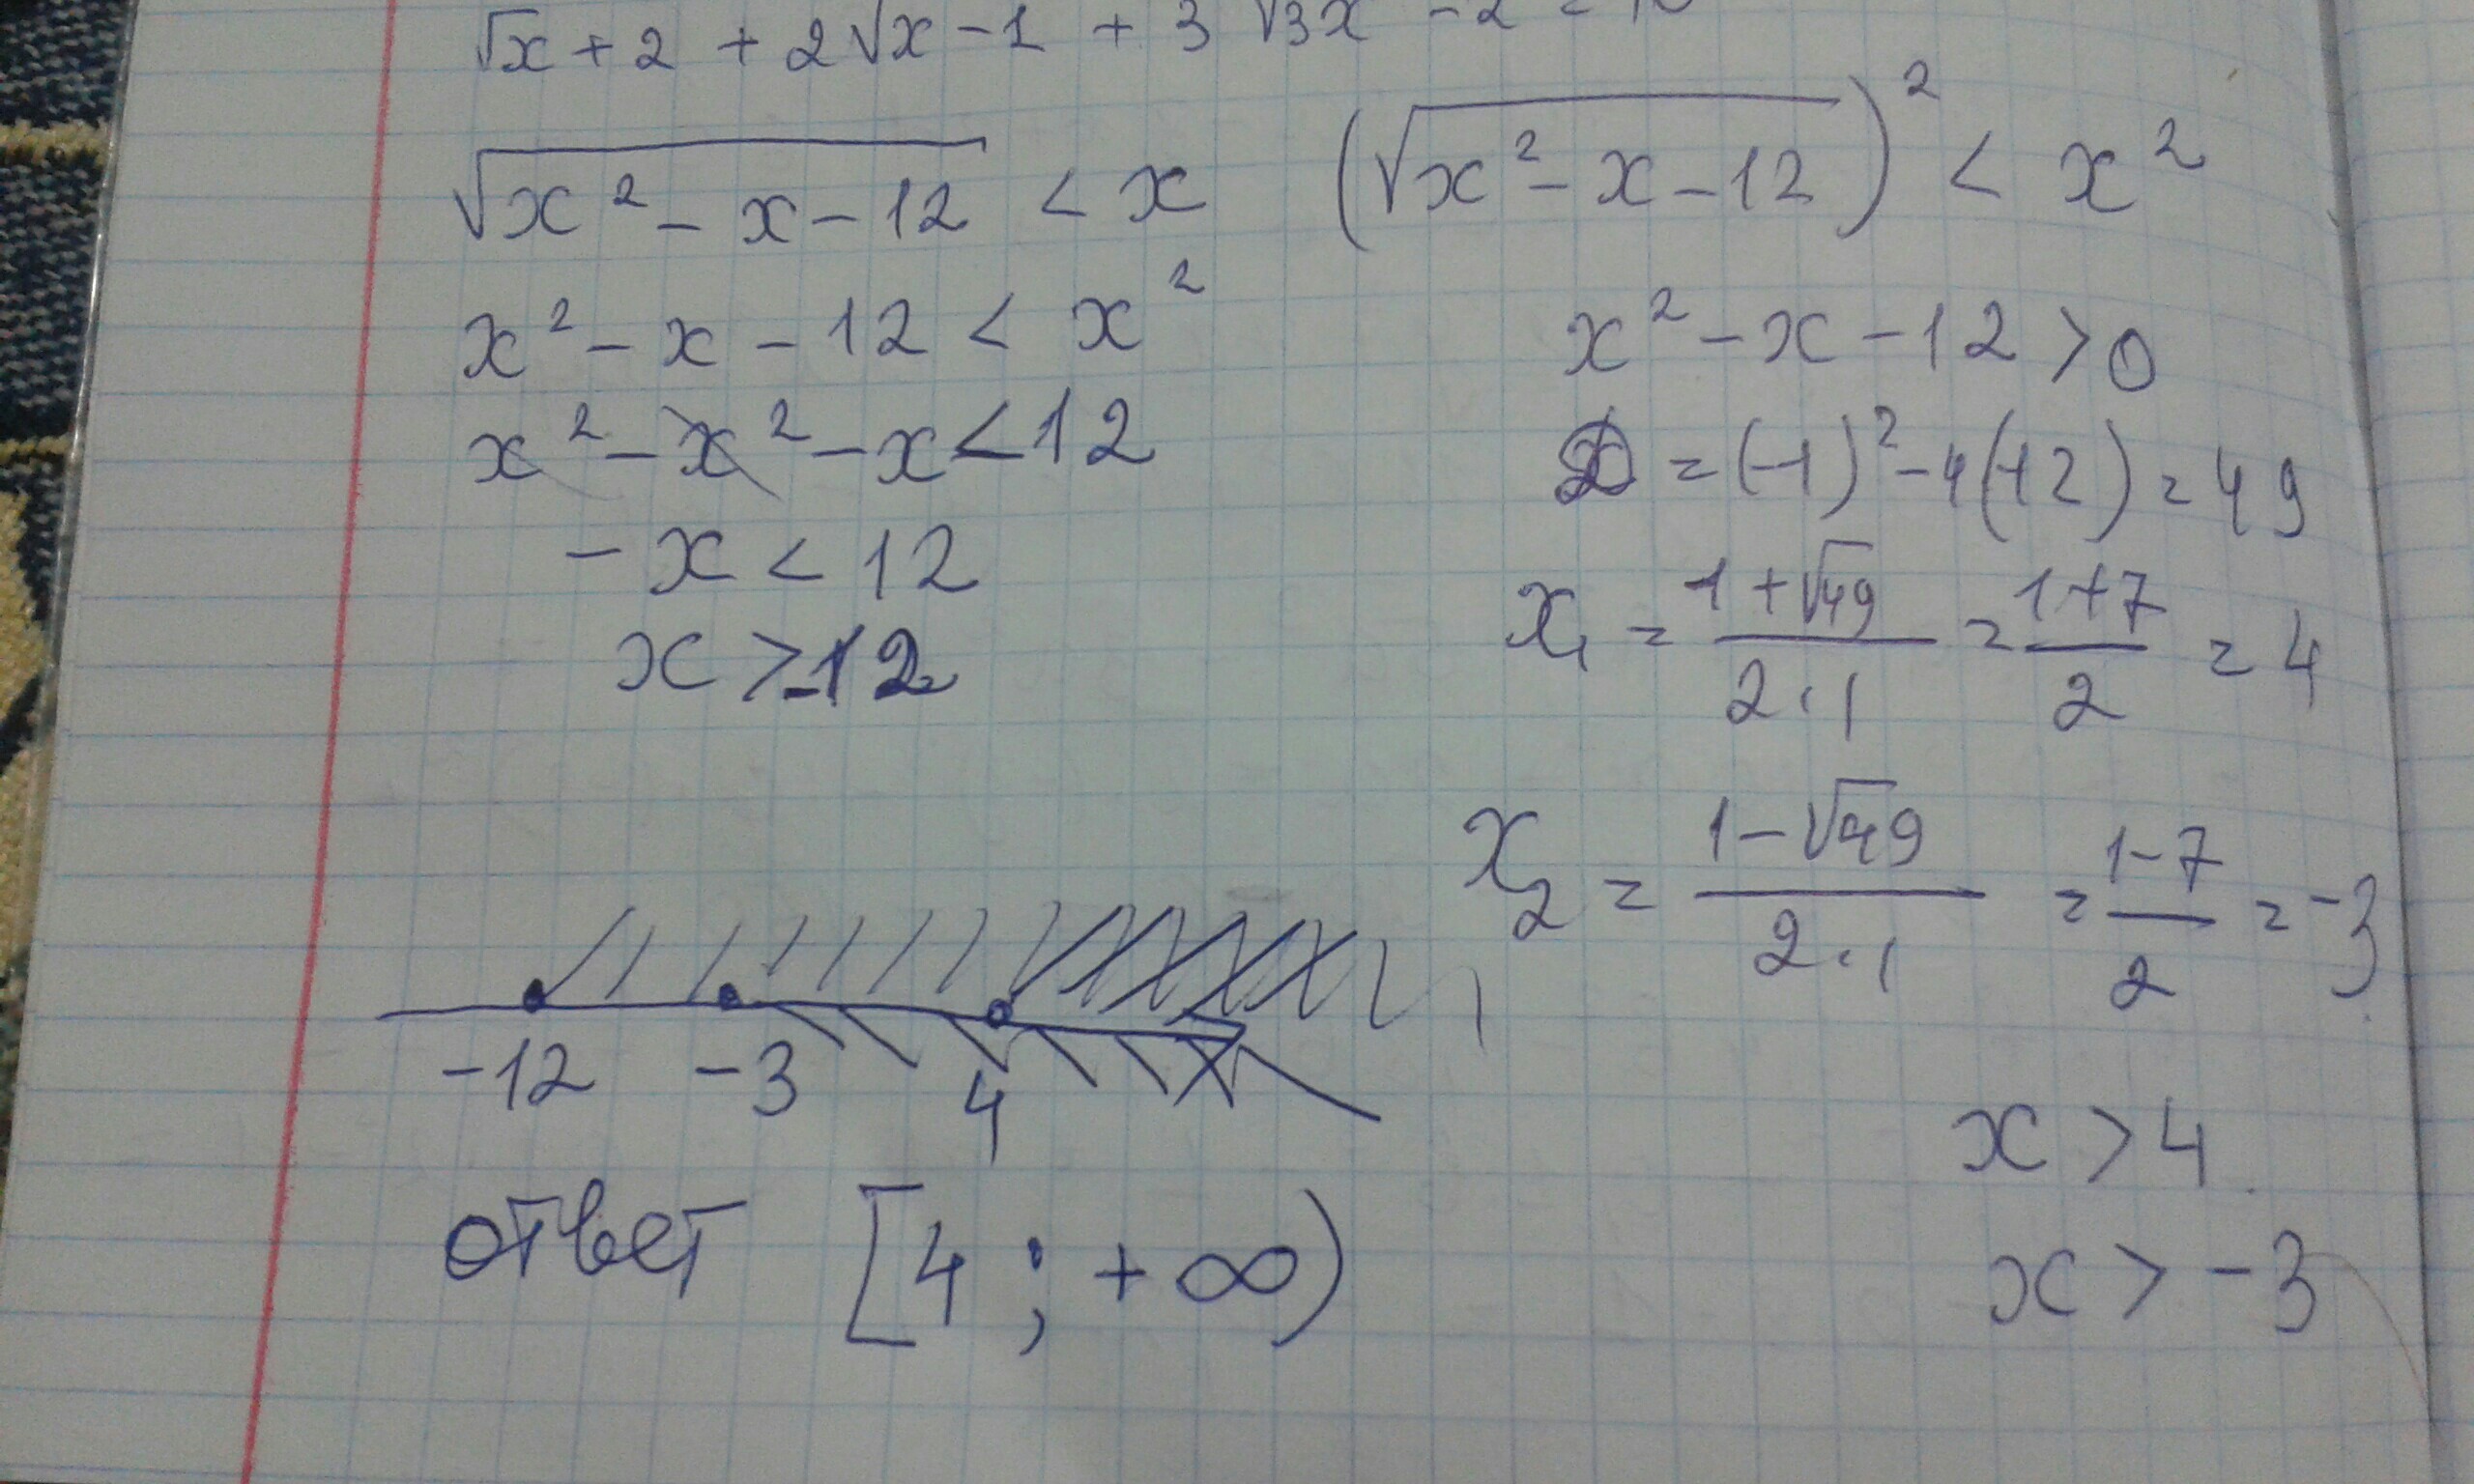 √x + 2 + 2√x - 1 + 3 √3x - 2 =
√(x² - x - 12) < x
(√(x² - x - 12))² < x²
x² - x - 12 < x²
x² - x² - x < 12
- x < 12
x > -12
x² - x - 12 > 0
D = (-1)² - 4(-12) = 49
x₁ = (1 + √49)/(2·1) = (1+7)/2 = 4
x₂ = (1 - √49)/(2·1) = (1-7)/2 = -3
x > 4
x > -3
-12 -3 4
ответ [4 ; + ∞)